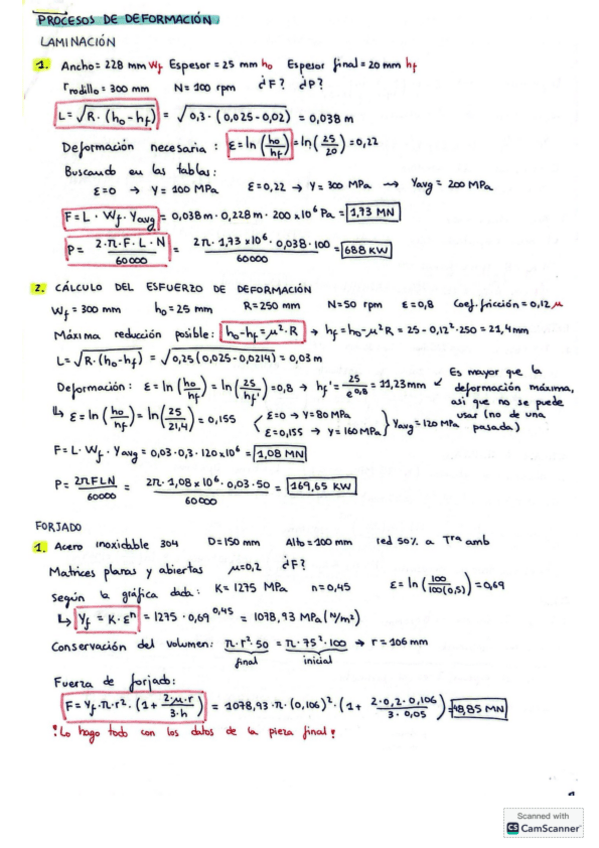 PROCESOS DE DEFORMACIÓN
LAMINACIÓN
1. Ancho = 228 mm Wf Espesor = 25 mm ho Espesor final = 20 mm hf
rrodillo = 300 mm N = 100 rpm ¿F? ¿P?
L = √R·(ho-hf) = √0,3·(0,025-0,02) = 0,038 m
Deformación necesaria: ε = ln(ho/hf) = ln(25/20) = 0,22
Buscando en las tablas:
ε=0 → Y = 100 MPa ε=0,22 → Y = 300 MPa → Yavg = 200 MPa
F = L · Wf · Yavg = 0,038m · 0,228m · 200 x10⁶ Pa = 1,73 MN
P = 2·π·F·L·N/60000 = 2π·1,73 x10⁶·0,038·100/60000 = 688 KW
2. CÁLCULO DEL ESFUERZO DE DEFORMACIÓN
Wf = 300 mm ho = 25 mm R = 250 mm N = 50 rpm ε = 0,8 Coef. fricción = 0,12 μ
Máxima reducción posible: ho-hf = μ²·R → hf = ho-μ²R = 25 - 0,12²·250 = 21,4 mm
L = √R·(ho-hf) = √0,25(0,025-0,0214) = 0,03 m
Deformación: ε = ln(ho/hf) = ln(25/hf') = 0,8 → hf' = 25/e^0,8 = 11,23mm ↙ Es mayor que la deformación máxima, así que no se puede usar (no de una pasada)
↳ ε = ln(ho/hf) = ln(25/21,4) = 0,155 ε=0 → Y = 80 MPa ε=0,155 → Y = 160 MPa } Yavg = 120 MPa
F = L · Wf · Yavg = 0,03·0,3·120x10⁶ = 1,08 MN
P = 2πFLN/60000 = 2π·1,08 x10⁶·0,03·50/60000 = 169,65 KW
FORJADO
1. Acero inoxidable 304 D = 150 mm Alto = 100 mm red 50% a Tra amb
Matrices planas y abiertas μ = 0,2 ¿F?
Según la gráfica dada: K = 1275 MPa n = 0,45 ε = ln(100/100(0,5)) = 0,69
↳ Yf = K·εⁿ = 1275 · 0,69^0,45 = 1078,93 MPa (N/m²)
Conservación del volumen: π·r²·50 = π·75²·100 → r = 106 mm
final inicial
Fuerza de forjado:
F = Yf·π·r²·(1 + 2·μ·r/3·h) = 1078,93·π·(0,106)²·(1 + 2·0,2·0,106/3·0,05) = 48,85 MN
¡Lo hago todo con los datos de la pieza final!
Scanned with
CS CamScanner